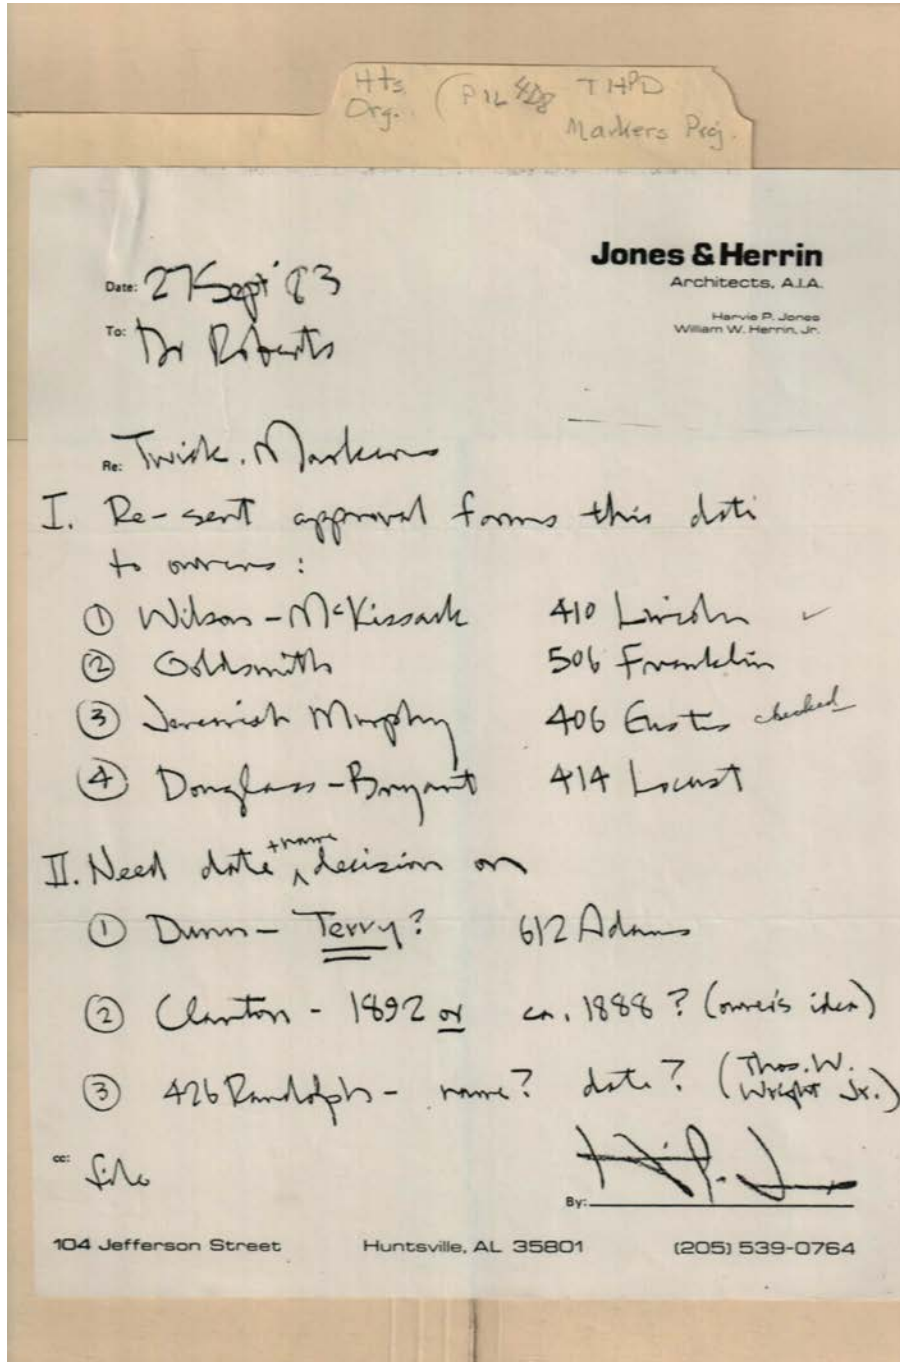 Hts. Org. ( P16 THPD
Markers Proj.
Jones & Herrin
Architects, A.I.A.
Harvie P. Jones
William W. Herrin, Jr.
Date: 27 Sept '83
To: Dr Roberts
Re: Twick. Markers
I. Re-sent approval forms this date
to owners:
① Wilson-McKissack 410 Lincoln ✓
② Goldsmith 506 Franklin
③ Jeremiah Murphy 406 Eustis checked
④ Douglass-Bryant 414 Locust
II. Need date + name decision on
① Dunn- Terry? 612 Adams
② Clanton - 1892 or ca. 1888? (owner's idea)
③ 426 Randolph- name? date? (Thos. W. Wright Jr.)
cc: file
By:
104 Jefferson Street Huntsville, AL 35801 (205) 539-0764